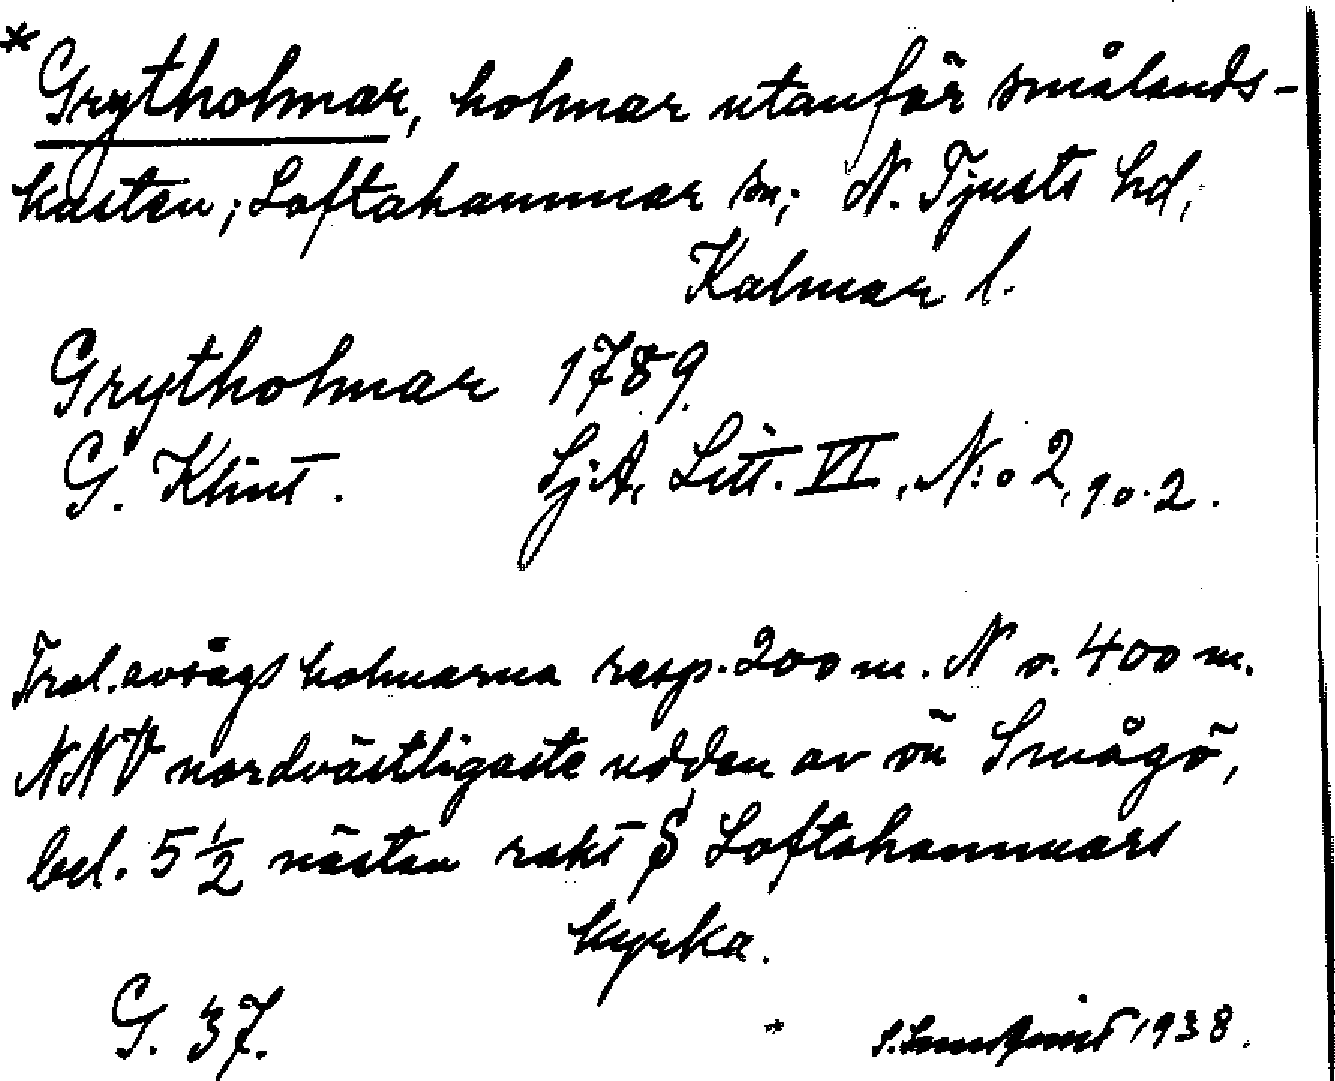 *Grytholmar, holmar utanför smålands-
kusten; Loftahammar sn; N. Tjusts hd,
Kalmar l.
Grytholmar 1789.
G. Klint. SjA, Litt. VI, N:o 2, 10.2.
Trol. avsågs holmarna resp. 200 m. N o. 400 m.
NNV nordvästligaste udden av ön Smågö,
bel. 5 1/2 nästan rakt S Loftahammars
kyrka.
G. 37. 1938.